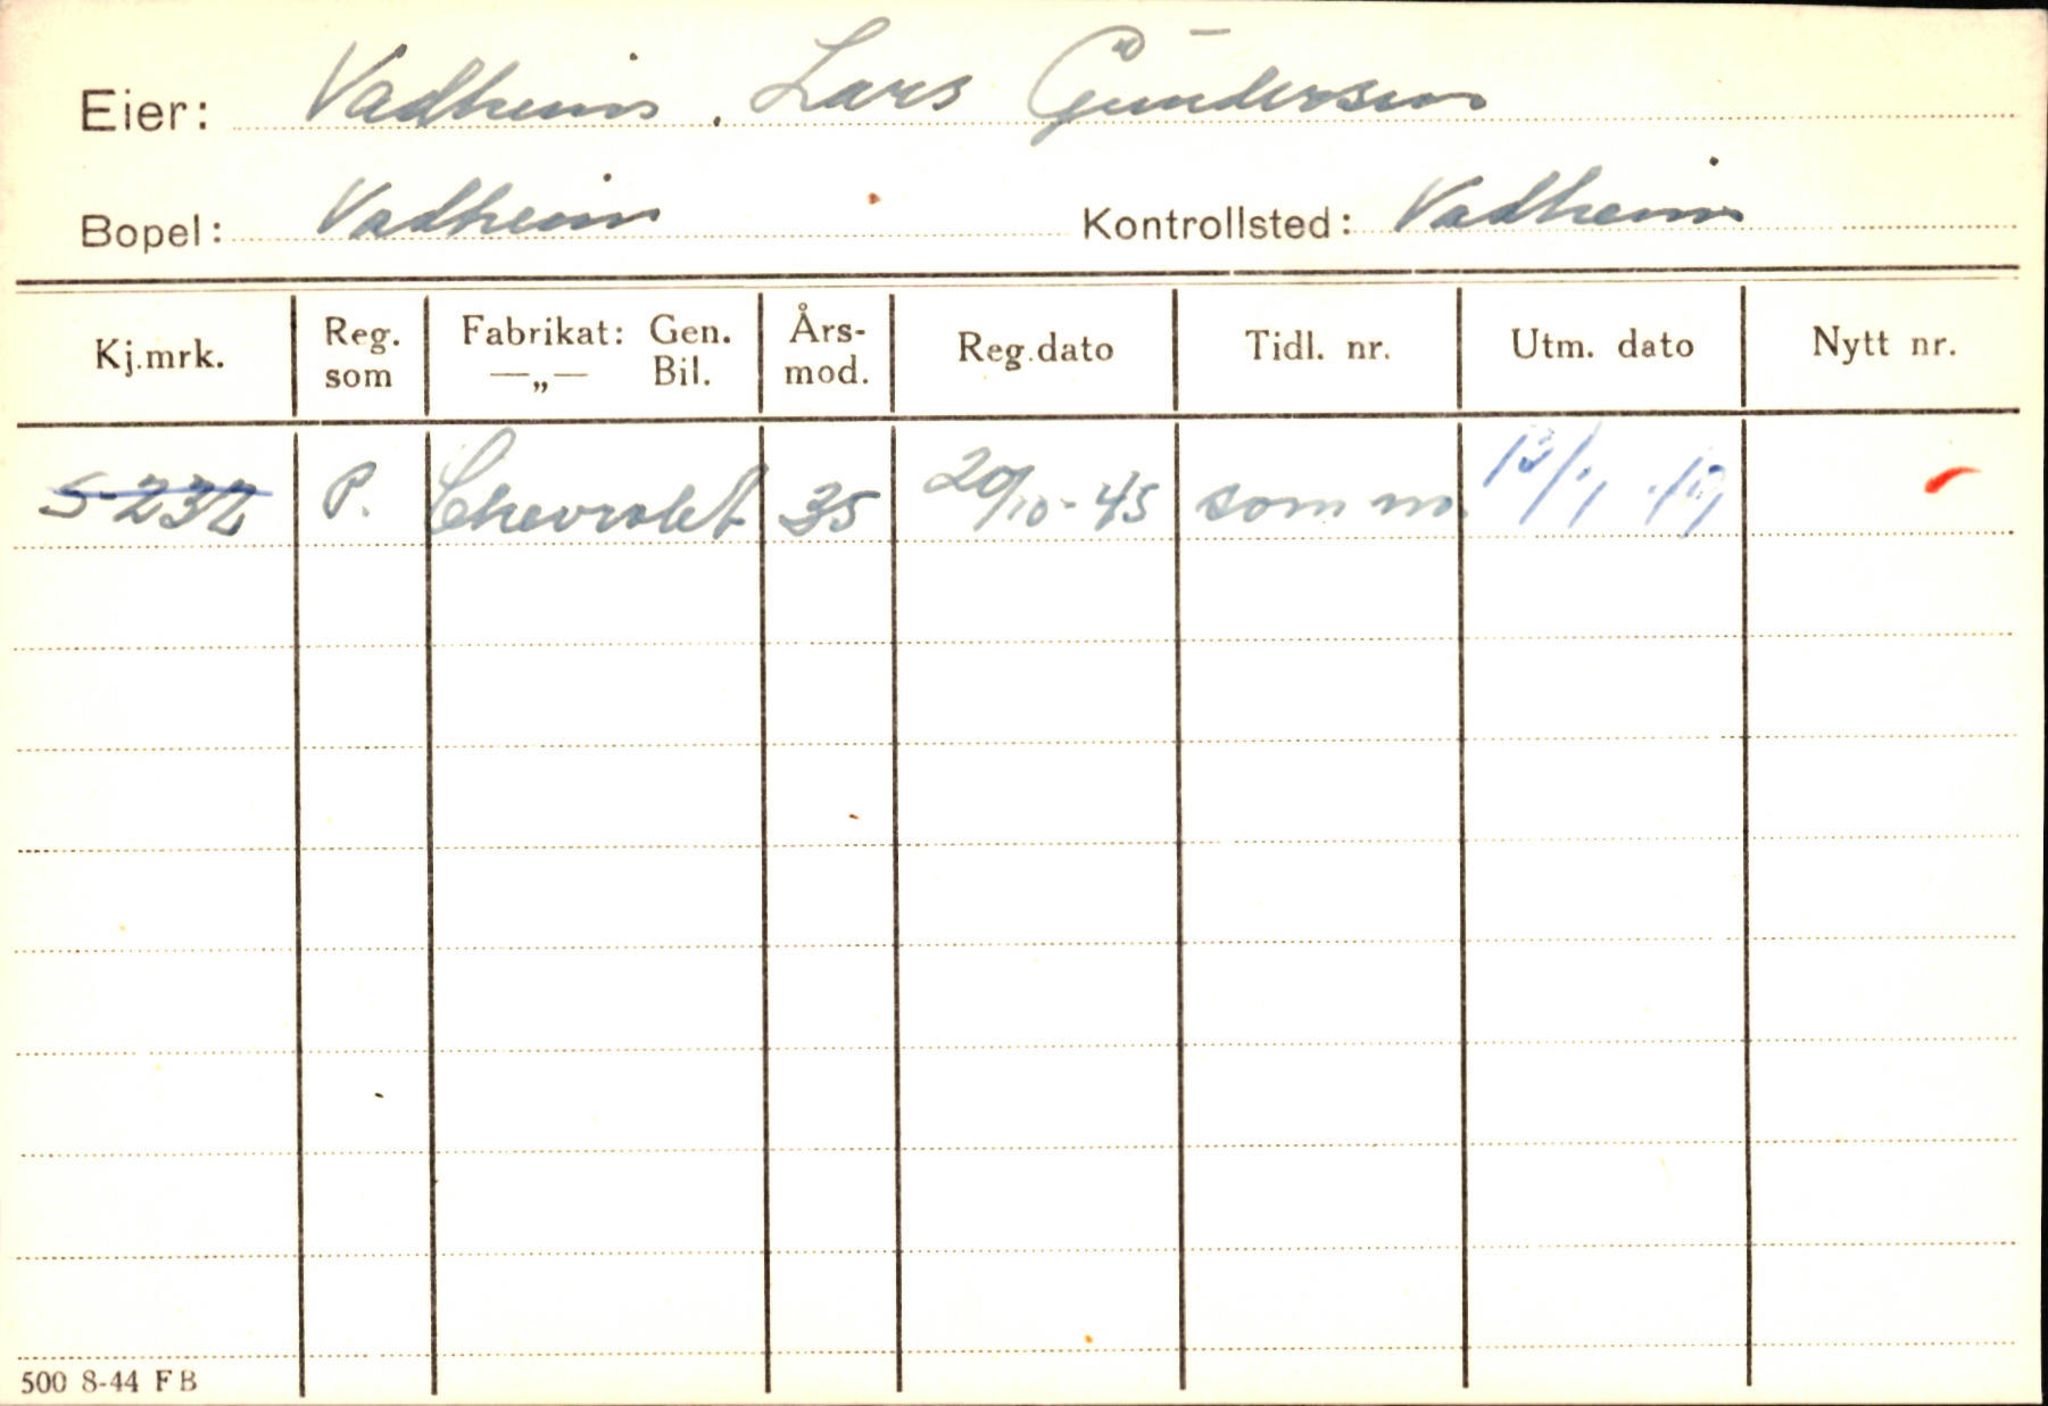 Eier: Vadheim, Lars Gundersen
Bopel: Vadheim Kontrollsted: Vadheim
Kj.mrk. Reg. som Fabrikat: Gen. —„— Bil. Års-mod. Reg.dato Tidl. nr. Utm. dato Nytt nr.
S-232 P. Chevrolet 35 20/10-45 som nr.
500 8-44 FB